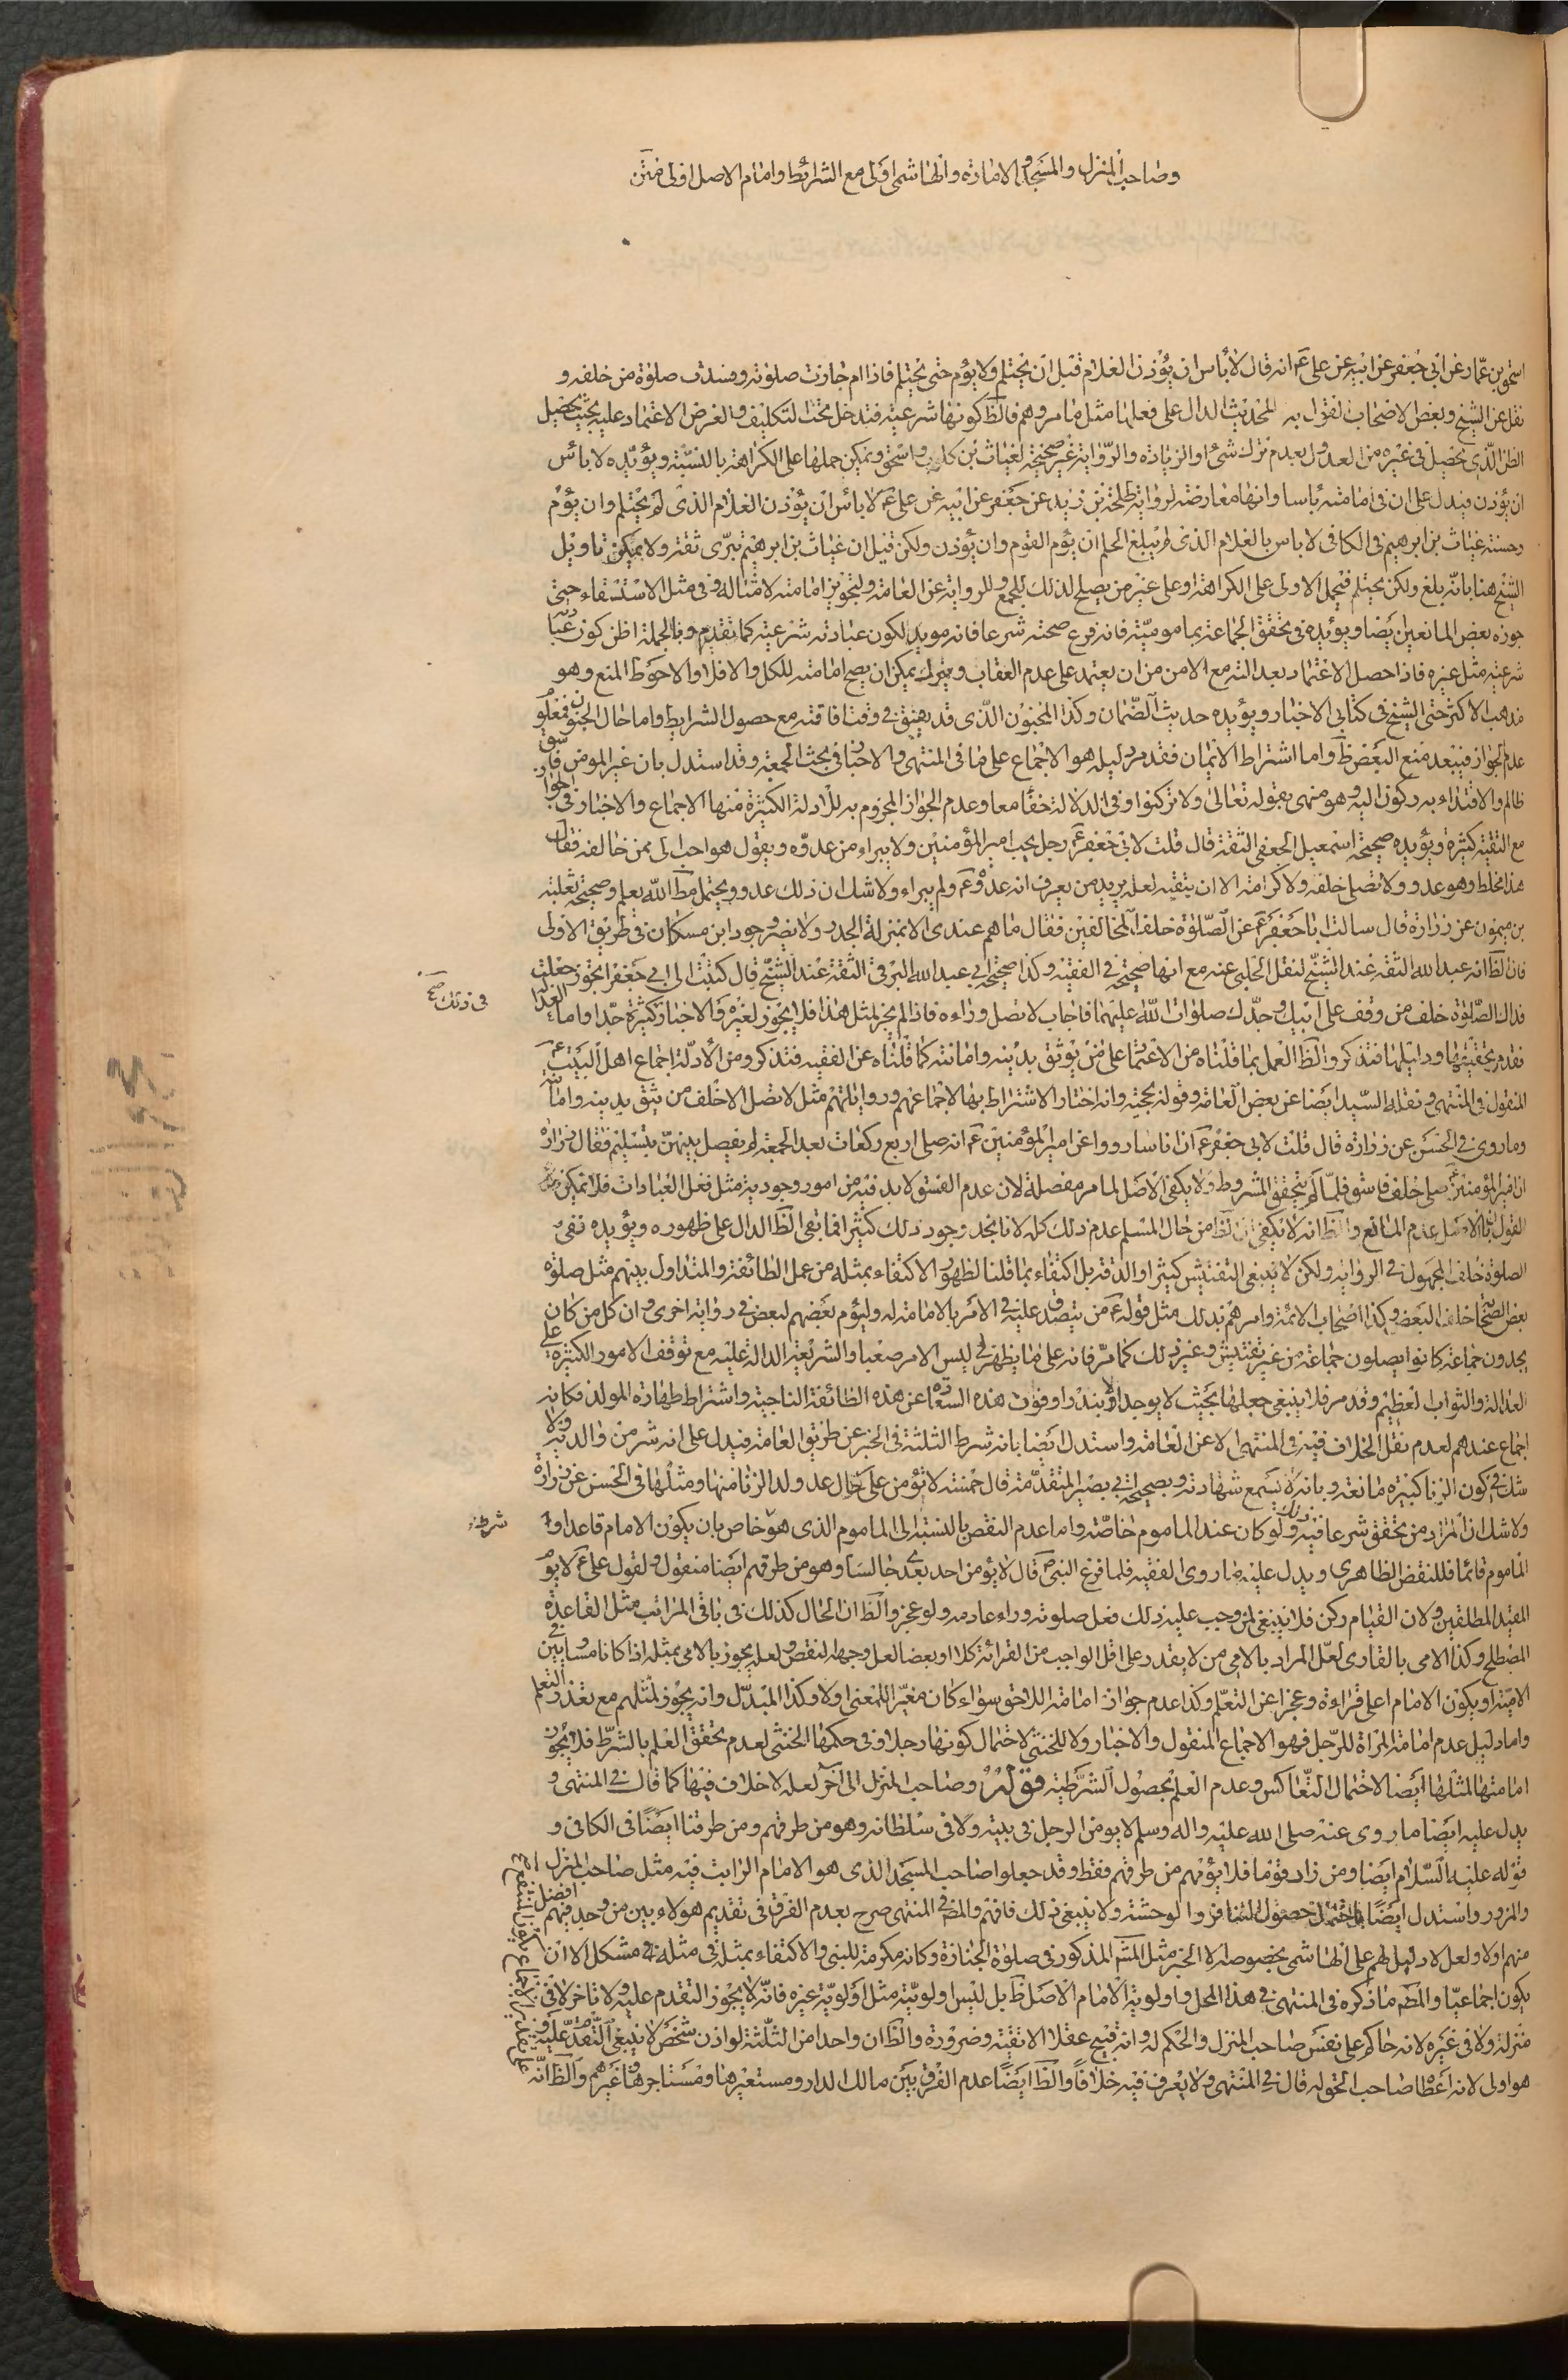 وصاحب المنزل والمسجد والامارة والهاشمى اولى مع الشرائط وامام الاصل اولى فمن
اسحق بن عمار عن ابى جعفر عن ابيه عن على عم انه قال لا بأس ان يؤذن الغلام قبل ان يحتلم ولا يؤم حتى يحتلم فاذا ام جازت صلوته وفسدت صلوة من خلفه و
نقل عن الشيخ وبعض الاصحاب القول به للحديث الدال على فعلها مثل ما مر وهم فالظ كونها شرعية فتدخل تحت التكليف والغرض الاعتماد عليه بحيث يحصل
الظن الذى يحصل فى غيره من العدول بعدم ترك شئ او الزيادة والرواية غير صحيحة لغياث بن كلوب واسحق ويمكن حملها على الكراهة بالنسبة ويؤيده لا بأس
ان يؤذن فيدل على ان فى امامته بأسا وانها معارضة لرواية طلحة بن زيد عن جعفر عن ابيه عن على عم لا بأس ان يؤذن الغلام الذى لم يحتلم وان يؤم
وحسنة غياث بن ابرهيم فى الكافى لا باس بالغلام الذى لم يبلغ الحلم ان يؤم القوم وان يؤذن ولكن قيل ان غياث بن ابرهيم تبرى ثقة ولا يمكن تاويل
الشيخ هنا بانه بلغ ولكن يحتلم فيحمل الاولى على الكراهة او على غير من يصلح لذلك للجمع وللرواية عن العامة ولتجويز امامته لامثاله وفى مثل الاستسقاء حتى
جوزه بعض المانعين ايضا ويؤيده فى تحقق الجماعة بماموميته فانه فرع صحته شرعا فانه مويد لكون عبادته شرعية كما تقدم وبالجملة اظن كون عبا
شرعية مثل غيره فاذا حصل الاعتماد بعدالته مع الامن من ان يعتمد على عدم العقاب ويترك يمكن ان يصح امامته للكل والا فلا والاحوط المنع وهو
مذهب الاكثر حتى الشيخ فى كتابى الاخبار ويؤيده حديث الضمان وكذا المجنون الذى قد يفيق فى وقت افاقته مع حصول الشرايط واما حال الجنون فمعلو
عدم الجواز فيبعد منع البعض ظ واما اشتراط الايمان فقد مر دليله هو الاجماع على ما فى المنتهى والاخبار فى بحث الجمعة وقد استدل بان غير المومن فاسق
ظالم والاقتداء به ركون اليه وهو منهى بقوله تعالى ولا تركنوا وفى الدلالة خفا معا وعدم الجواز المجزوم به للادلة الكثيرة منها الاجماع والاخبار فى الجوا
مع التقية كثيرة ويؤيده صحيحة اسمعيل الجعفى الثقة قال قلت لابى جعفر عم رجل يحب امير المؤمنين ولا يبراء من عدوه ويقول هو احب الى ممن خالفه فقال
هذا مخلط وهو عدو ولا تصلى خلفه ولا كرامة الا ان يتقيه لعله يريد من يعرف انه عدوه عم ولم يبراء ولا شك ان ذلك عدو ويحتمل مط الله يعلم وصحيحة ثعلبة
بن ميمون عن زرارة قال سالت ابا جعفر عم عن الصلوة خلف المخالفين فقال ما هم عندى الا بمنزلة الجدر ولا يضر وجود ابن مسكان فى طريق الاولى
فان الظ انه عبد الله الثقة عند الشيخ لنقل الحلبى عنه مع انها صحيحة فى الفقيه وكذا صحيحة ابى عبد الله البرقى الثقة عند الشيخ قال كتبت الى ابى جعفر ايجوز جعلت
فداك الصلوة خلف من وقف على ابيك وجدك صلوات الله عليهما فاجاب لا تصل وراءه فاذا لم يجز لمثل هذا فلا يجوز لغيره والاخبار كثيرة جدا واما العدا
فى ذلك صح
تقدم تحقيقها ودليلها فتذكر والظ العمل بما قلناه من الاعتماد على من يوثق بدينه وامانته كما قلناه عن الفقيه فتذكر ومن الأدلة اجماع اهل البيت عم
المنقول فى المنتهى ونقله السيد ايضا عن بعض العامة وقوله بحجيته وانه اختار الاشتراط بها لاجماعهم ورواياتهم مثل لا تصل الا خلف من تثق بدينه وامانته
وما روى فى الحسن عن زرارة قال قلت لابى جعفر عم ان اناسا رووا عن امير المؤمنين عم انه صلى اربع ركعات بعد الجمعة لم يفصل بينهن بتسليم فقال زرارة
ان امير المؤمنين عم صلى خلف فاسق فلما لم يتحقق المشروط ولا يكفى الاصل لما مر مفصلة لان عدم الفسق لا بد فيه من امور وجودية مثل فعل العبادات فلا يمكن
القول بان الاصل عدم المانع والظ انه لا يكفى ان الظ من حال المسلم عدم ذلك كله لانا نجد وجود ذلك كثيرا فما بقى الظ الدال على ظهوره ويؤيده نفى
الصلوة خلف المجهول فى الرواية ولكن لا ينبغى التفتيش كثيرا والدقة بل اكتفاء بما قلنا لظهور الاكتفاء بمثله من عمل الطائفة والمتداول بينهم مثل صلوة
بعض الصحابة خلف البعض وكذا اصحاب الائمة وامرهم بذلك مثل قوله عم من يتصدق عليه فى الامر بالامامة له وليؤم بعضهم لبعض فى رواية اخرى وان كل من كان
يجدون جماعة كانوا يصلون جماعة من غير تفتيش وغير ذلك كما مر فانه على ما يظهر لى ليس الامر صعبا والشريعة الدالة عليه مع توقف الامور الكثيرة على
العدالة والثواب العظيم وقد مر فلا ينبغى جعلها بحيث لا يوجد الا بندرا وفوت هذه السعادة عن هذه الطائفة الناجية واشتراط طهارة المولد فكانه
اجماع عندهم لعدم نقل الخلاف فيه فى المنتهى الا عن العامة واستدل ايضا بانه شرط الثلثة فى الخبر عن طريق العامة فيدل على انه شر من والديه ولا
شك فى كون الزنا كبيرة مانعة وبانه لا يسمع شهادته وبصحيحة ابى بصير المتقدمة قال خمسة لا يؤمن على كل حال عد ولد الزنا منها ومثلها فى الحسن عن زرارة
ولا شك ان المراد من تحقق شرعا فيه ذلك ولو كان عند الماموم خاصة واما عدم النقص بالنسبة الى الماموم الذى هو خاص بان يكون الامام قاعدا و
شرط
الماموم قائما فللنقض الظاهرى ويدل عليه ما روى الفقيه فلما فرغ النبى ص قال لا يؤمن احد بعدى جالسا وهو من طرقهم ايضا منقول ولقول على عم لا يؤ
المقيد المطلقين ولان القيام ركن فلا ينبغى لمن وجب عليه ذلك فعل صلوته وراء عادمه ولو عجز والظ ان الحال كذلك فى باقى المراتب مثل القاعدة
المضطلح وكذا الامى بالقارى لعل المراد بالامى من لا يقدر على اقل الواجب من القرائة كلا او بعضا لعل وجهه النقص ولعله يجوز بالامى بمثله اذا كانا مساويين فى
الامية او يكون الامام اعلى قراءة وعجزا عن التعلم وكذا عدم جواز امامة اللاحق سواء كان مغيرا للمعنى اولا وكذا المبدل وانه يجوز لمثلهم مع تعذر التعلم
واما دليل عدم امامة المرأة للرجل فهو الاجماع المنقول والاخبار ولا للخنثى لاحتمال كونها رجلا وفى حكمها الخنثى لعدم تحقق العلم بالشرط فلا يجوز
امامتها لمثلها ايضا لاحتمال التعاكس وعدم العلم بحصول الشرطية قوله وصاحب المنزل الى آخر لعله لا خلاف فيها كما قال فى المنتهى و
يدل عليه ايضا ما روى عنه صلى الله عليه واله وسلم لا يؤمن الرجل فى بيته ولا فى سلطانه وهو من طرقهم ومن طرقنا ايضا فى الكافى و
قوله عليه السلام ايضا ومن زار قوما فلا يؤمهم من طرقهم فقط وقد جعلوا صاحب المسجد الذى هو الامام الراتب فيه مثل صاحب المنزل
والمزور واستدل ايضا باحتمال حصول التنافر والوحشة ولا ينبغى ذلك فافهم والمص فى المنتهى صرح بعدم الفرق فى تقديم هولاء بين من وجد فيهم افضل
منهم اولا ولعل لا دليل لهم على الهاشمى بخصوصه الا الخبر مثل المذكور فى صلوة الجنازة وكانه مكرمة للنبى والاكتفاء بمثله فى مثله مشكل الا ان
يكون اجماعيا والمط ما ذكره فى المنتهى فى هذا المحل واولوية الامام الاصل ظ بل ليس اولويته مثل اولوية غيره فانه لا يجوز التقدم عليه ولا تاخر لا فى
منزلة ولا فى غيره لانه حاكم على نفس صاحب المنزل والحكم له وانه قبيح عقلا الا لتقية وضرورة والظ ان واحدا من الثلثة لو اذن شخص لا ينبغى التقدم عليه و
هو اولى لانه اعطا صاحب الحق له قال فى المنتهى ولا يعرف فيه خلافا والظ ايضا عدم الفرق بين مالك الدار ومستعيرها ومستاجرها وغيرهم والظ انه